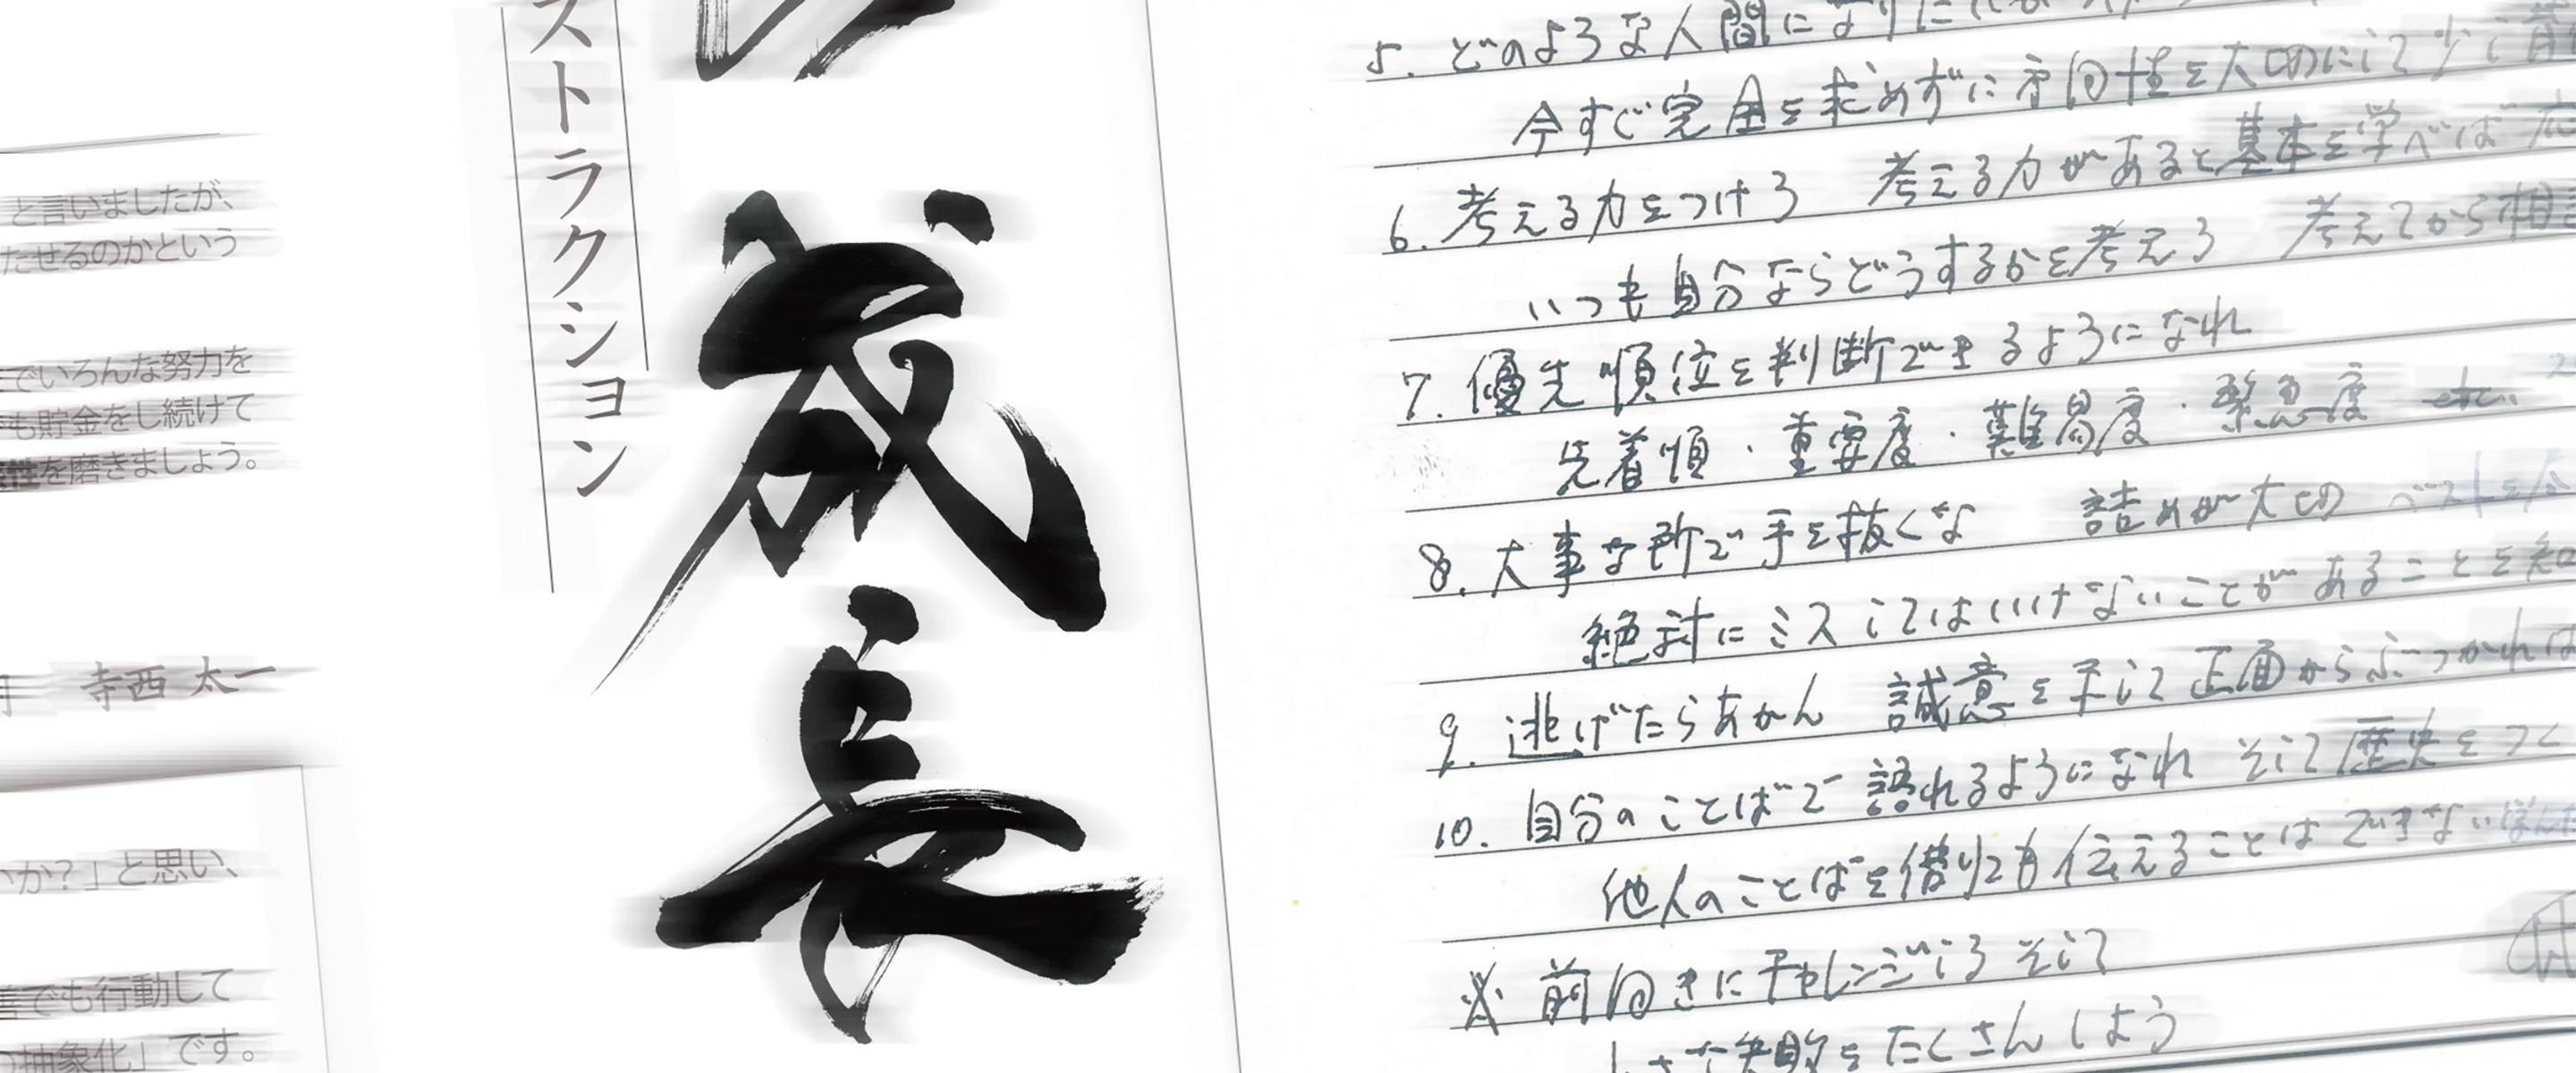 と言いましたが、
たせるのかという
でいろんな努力を
も貯金をし続けて
性を磨きましょう。
寺西 太一
か?」と思い、
でも行動して
抽象化」です。
ストラクション
成長
5. どのような人間になりたいか
今すぐ完全を求めずに方向性を大切にして少し
6. 考える力をつけろ 考える力があると基本を学べば
いつも自分ならどうするかを考えろ 考えてから相
7. 優先順位を判断できるようになれ
先着順・重要度・難易度・緊急度 etc.
8. 大事な所で手を抜くな 詰めが大切 ベストを
絶対にミスしてはいけないことがあることを知
9. 逃げたらあかん 誠意を示して正面からぶつかれば
10. 自分のことばで語れるようになれ そして歴史をつく
他人のことばを借りても伝えることはできない
※ 前向きにチャレンジしろ そして
小さな失敗をたくさんしよう